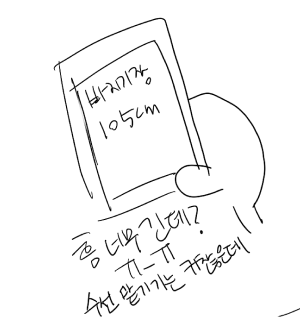 바지기장
105cm
흠 너무 긴데?
ㅠ-ㅠ
수선 맡기기는 귀찮은데